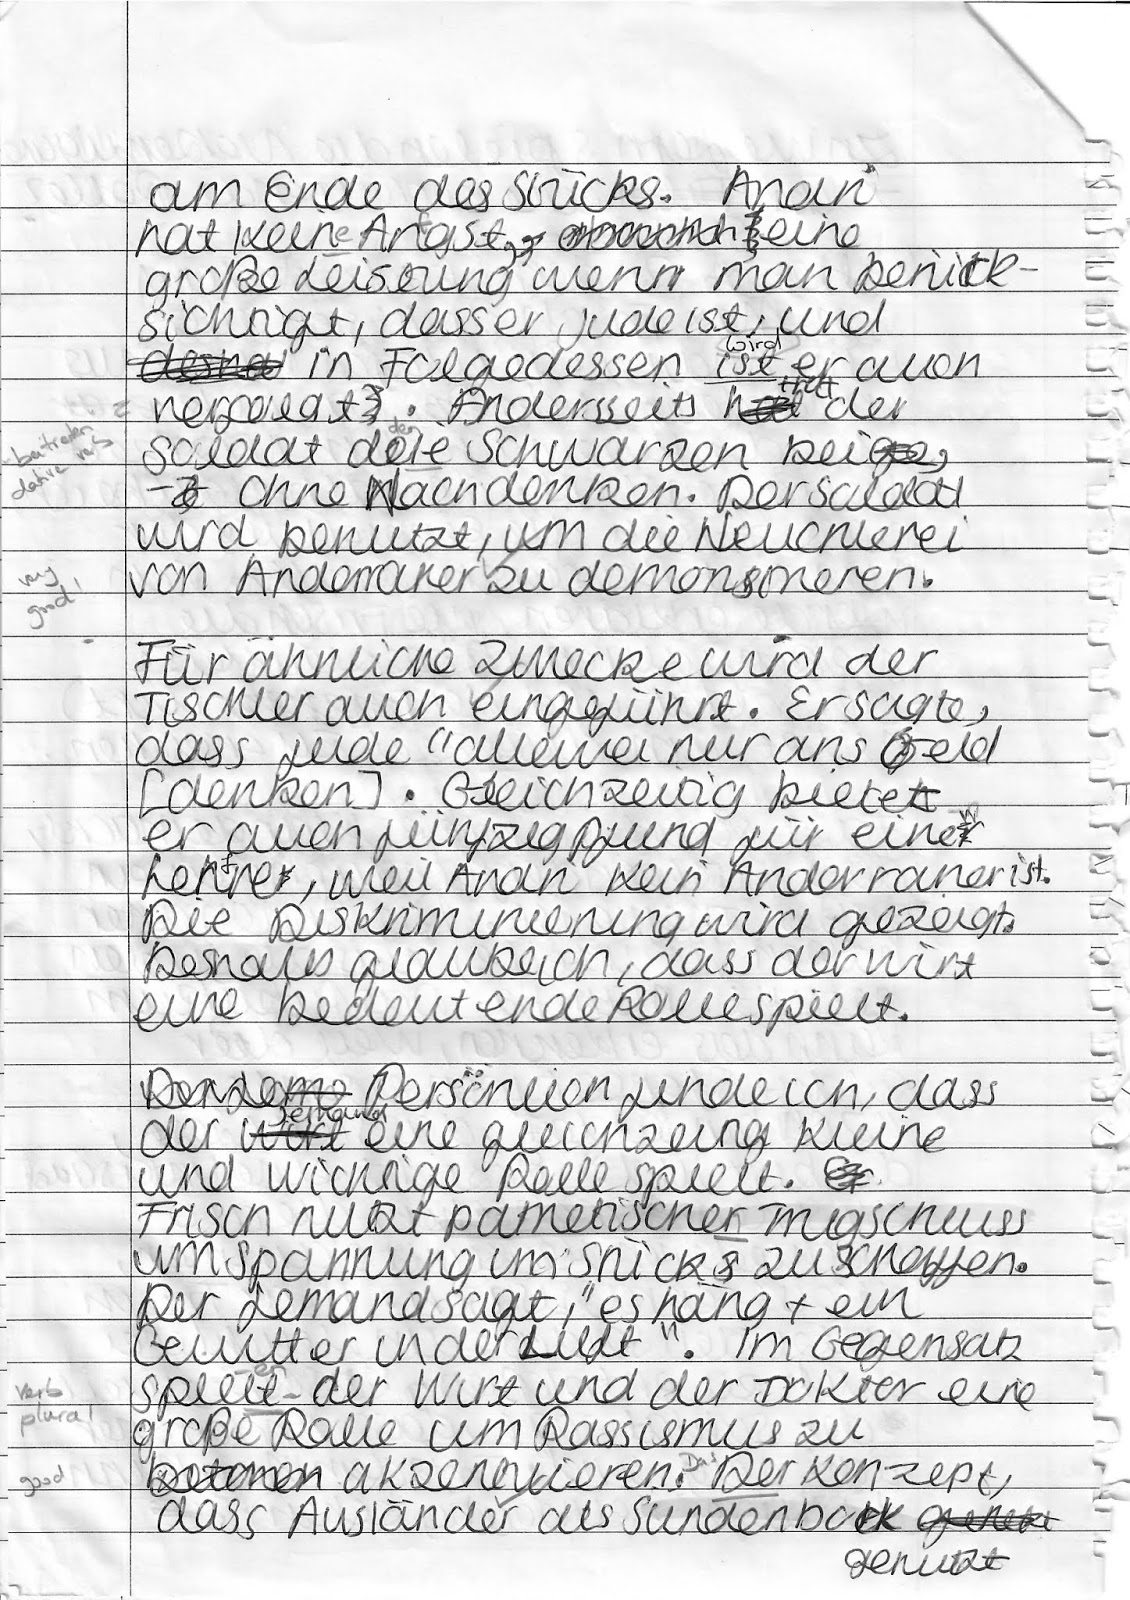 am Ende des Stücks. Andri
hat keine Angst, eine
große Leistung wenn man berück-
sichtigt, dass er jude ist, und
in Folgedessen ist wird er auch
verfolgt. Anderseits tritt der
beitreten
dative verb
soldat die den Schwarzen bei,
ohne Nachdenken. Der Soldat
wird benutzt, um die Heuchlerei
very
good!
von Andorraner zu demonstrieren.
Für ähnliche Zwecke wird der
Tischler auch eingeführt. Er sagte,
dass jude "allewei nur ans Geld
[denken]. Gleichzeitig bietet
er auch fünfzig Pfund für einen
Lehre, weil Andri kein Andorraner ist.
Die Diskriminierung wird gezeigt.
Deshalb glaube ich, dass der wirt
eine bedeutende Rolle spielt.
Persönlich finde ich, dass
der Jemand eine gleichzeitig kleine
und wichtige Rolle spielt.
Frisch nutzt pathetischen Trugschluss
um spannung im Stück zu schaffen.
Der Jemand sagt, "es häng t ein
Gewitter in der Luft". Im Gegensatz
verb
plural
spielt en der Wirt und der Doktor eine
große Rolle um Rassismus zu
good
akzentuieren. Das Der Konzept,
dass Ausländer als Sundenbock
genutzt